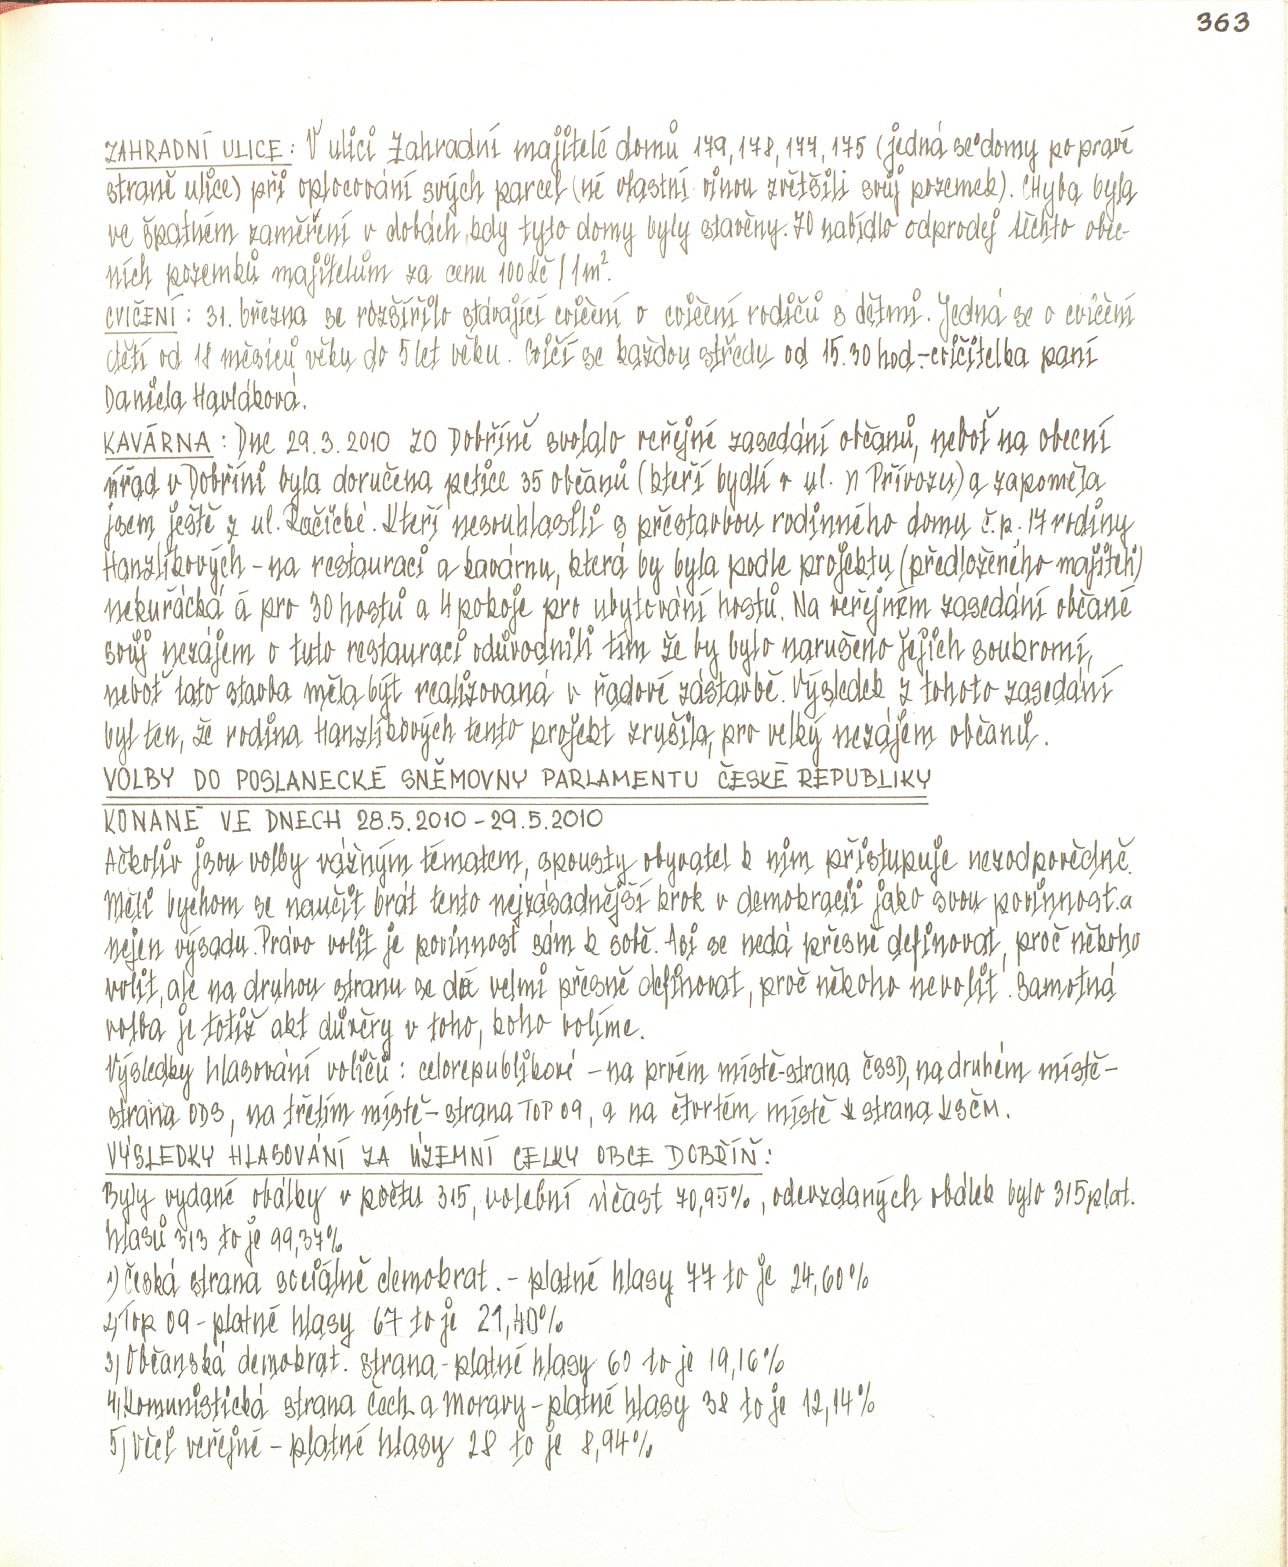 363
ZAHRADNÍ ULICE: V ulici Zahradní majitelé domů 179, 178, 177, 175 (jedná se o domy po pravé
straně ulice) při oplocování svých parcel (né vlastní vinou zvětšili svůj pozemek). Chyba byla
ve špatném zaměření v dobách, kdy tyto domy byly stavěny. ZO nabídlo odprodej těchto obec-
ních pozemků majitelům za cenu 100 Kč / 1m².
CVIČENÍ: 31. března se rozšířilo stávající cvičení o cvičení rodičů s dětmi. Jedná se o cvičení
dětí od 18 měsíců věku do 5 let věku. Cvičí se každou středu od 15.30 hod - cvičitelka paní
Daniela Havláková.
KAVÁRNA: Dne 29.3.2010 ZO Dobříně svolalo veřejné zasedání občanů, neboť na obecní
úřad v Dobříni byla doručena petice 35 občanů (kteří bydlí v ul. U Přívozu) a zapoměla
jsem ještě z ul. Račické. Kteří nesouhlasili s přestavbou rodinného domu č.p. 17 rodiny
Hanzlíkových - na restauraci a kavárnu, která by byla podle projektu (předloženého majiteli)
nekuřácká á pro 30 hostů a 4 pokoje pro ubytování hostů. Na veřejném zasedání občané
svůj nezájem o tuto restauraci odůvodnili tím že by bylo narušeno jejich soukromí,
neboť tato stavba měla být realizovaná v řadové zástavbě. Výsledek z tohoto zasedání
byl ten, že rodina Hanzlíkových tento projekt zrušila, pro velký nezájem občanů.
VOLBY DO POSLANECKÉ SNĚMOVNY PARLAMENTU ČESKÉ REPUBLIKY
KONANÉ VE DNECH 28.5.2010 - 29.5.2010
Ačkoliv jsou volby vážným tématem, spousty obyvatel k nim přistupuje nezodpovědně.
Měli bychom se naučit brát tento nejzásadnější krok v demokracii jako svou povinnost a
nejen výsadu. Právo volit je povinnost sám k sobě. Asi se nedá přesně definovat, proč někoho
volit, ale na druhou stranu se dá velmi přesně definovat, proč někoho nevolit. Samotná
volba je totiž akt důvěry v toho, koho volíme.
Výsledky hlasování voličů: celorepublikově - na prvém místě - strana ČSSD, na druhém místě -
strana ODS, na třetím místě - strana TOP 09, a na čtvrtém místě strana KSČM.
VÝSLEDKY HLASOVÁNÍ ZA ÚZEMNÍ CELKY OBCE DOBŘÍŇ:
Byly vydané obálky v počtu 315, volební účast 70,95%, odevzdaných obálek bylo 315 plat.
hlasů 313 to je 99,37%
1) Česká strana sociálně demokrat. - platné hlasy 77 to je 24,60%
2) Top 09 - platné hlasy 67 to je 21,40%
3) Občanská demokrat. strana - platné hlasy 60 to je 19,16%
4) Komunistická strana Čech a Moravy - platné hlasy 38 to je 12,14%
5) Věci veřejné - platné hlasy 28 to je 8,94%